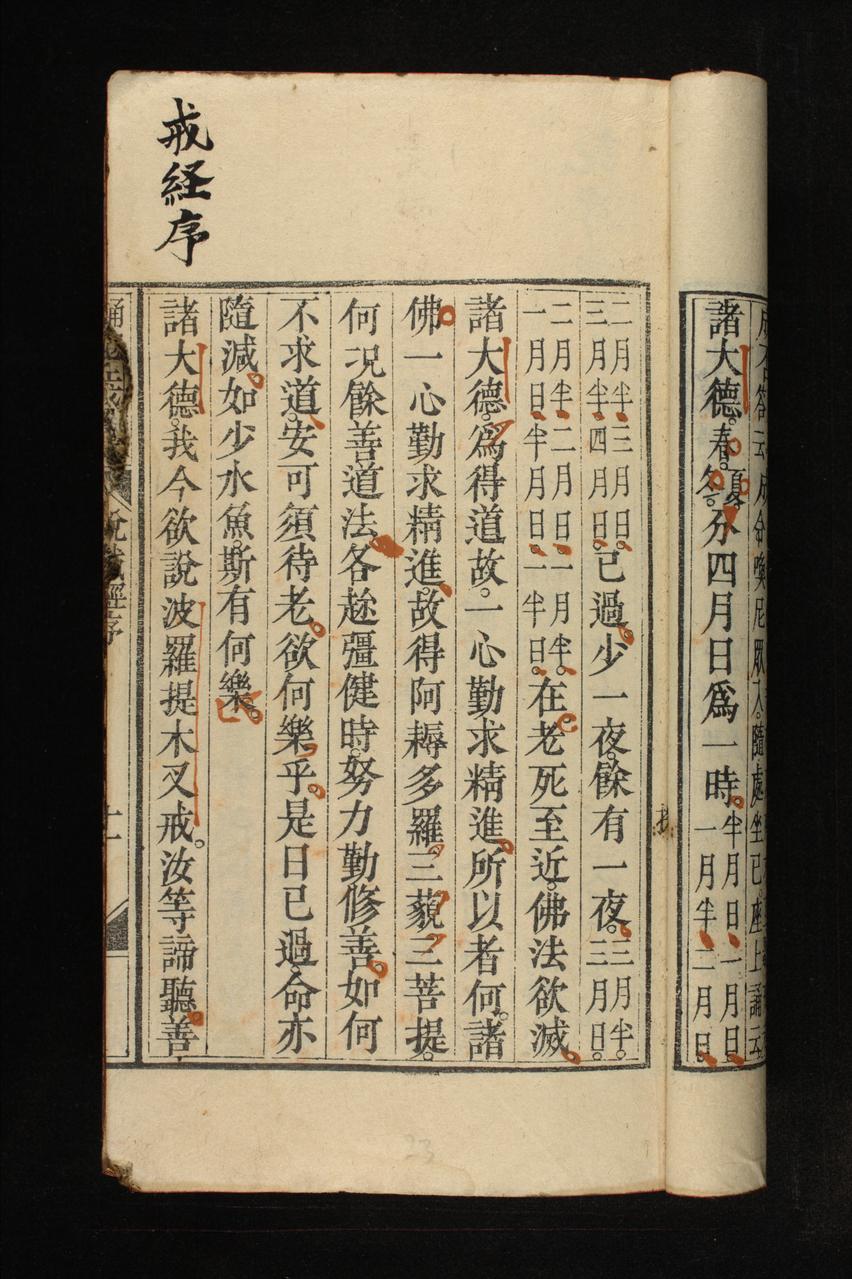 云
令喚尼眾入。隨處坐已。座上誦云
諸大德。春。夏冬。分四月日爲一時。半月日、一月日、一月半、二月日、
戒経序
二月半、三月日、三月半、四月日。已過。少一夜。餘有一夜。三月半。三月日。
二月半、二月日、一月半。一月日、半月日、一半日。在。老死至近。佛法欲滅。
諸大德。爲得道故。一心勤求精進。所以者何。諸
佛一心勤求精進。故得阿耨多羅三藐三菩提。
何況餘善道法。各趂彊健時。努力勤修善。如何
不求道。安可須待老。欲何樂乎。是日已過。命亦
隨減。如少水魚。斯有何樂。
諸大德。我今欲說波羅提木叉戒。汝等諦聽。善
說戒經序
十一